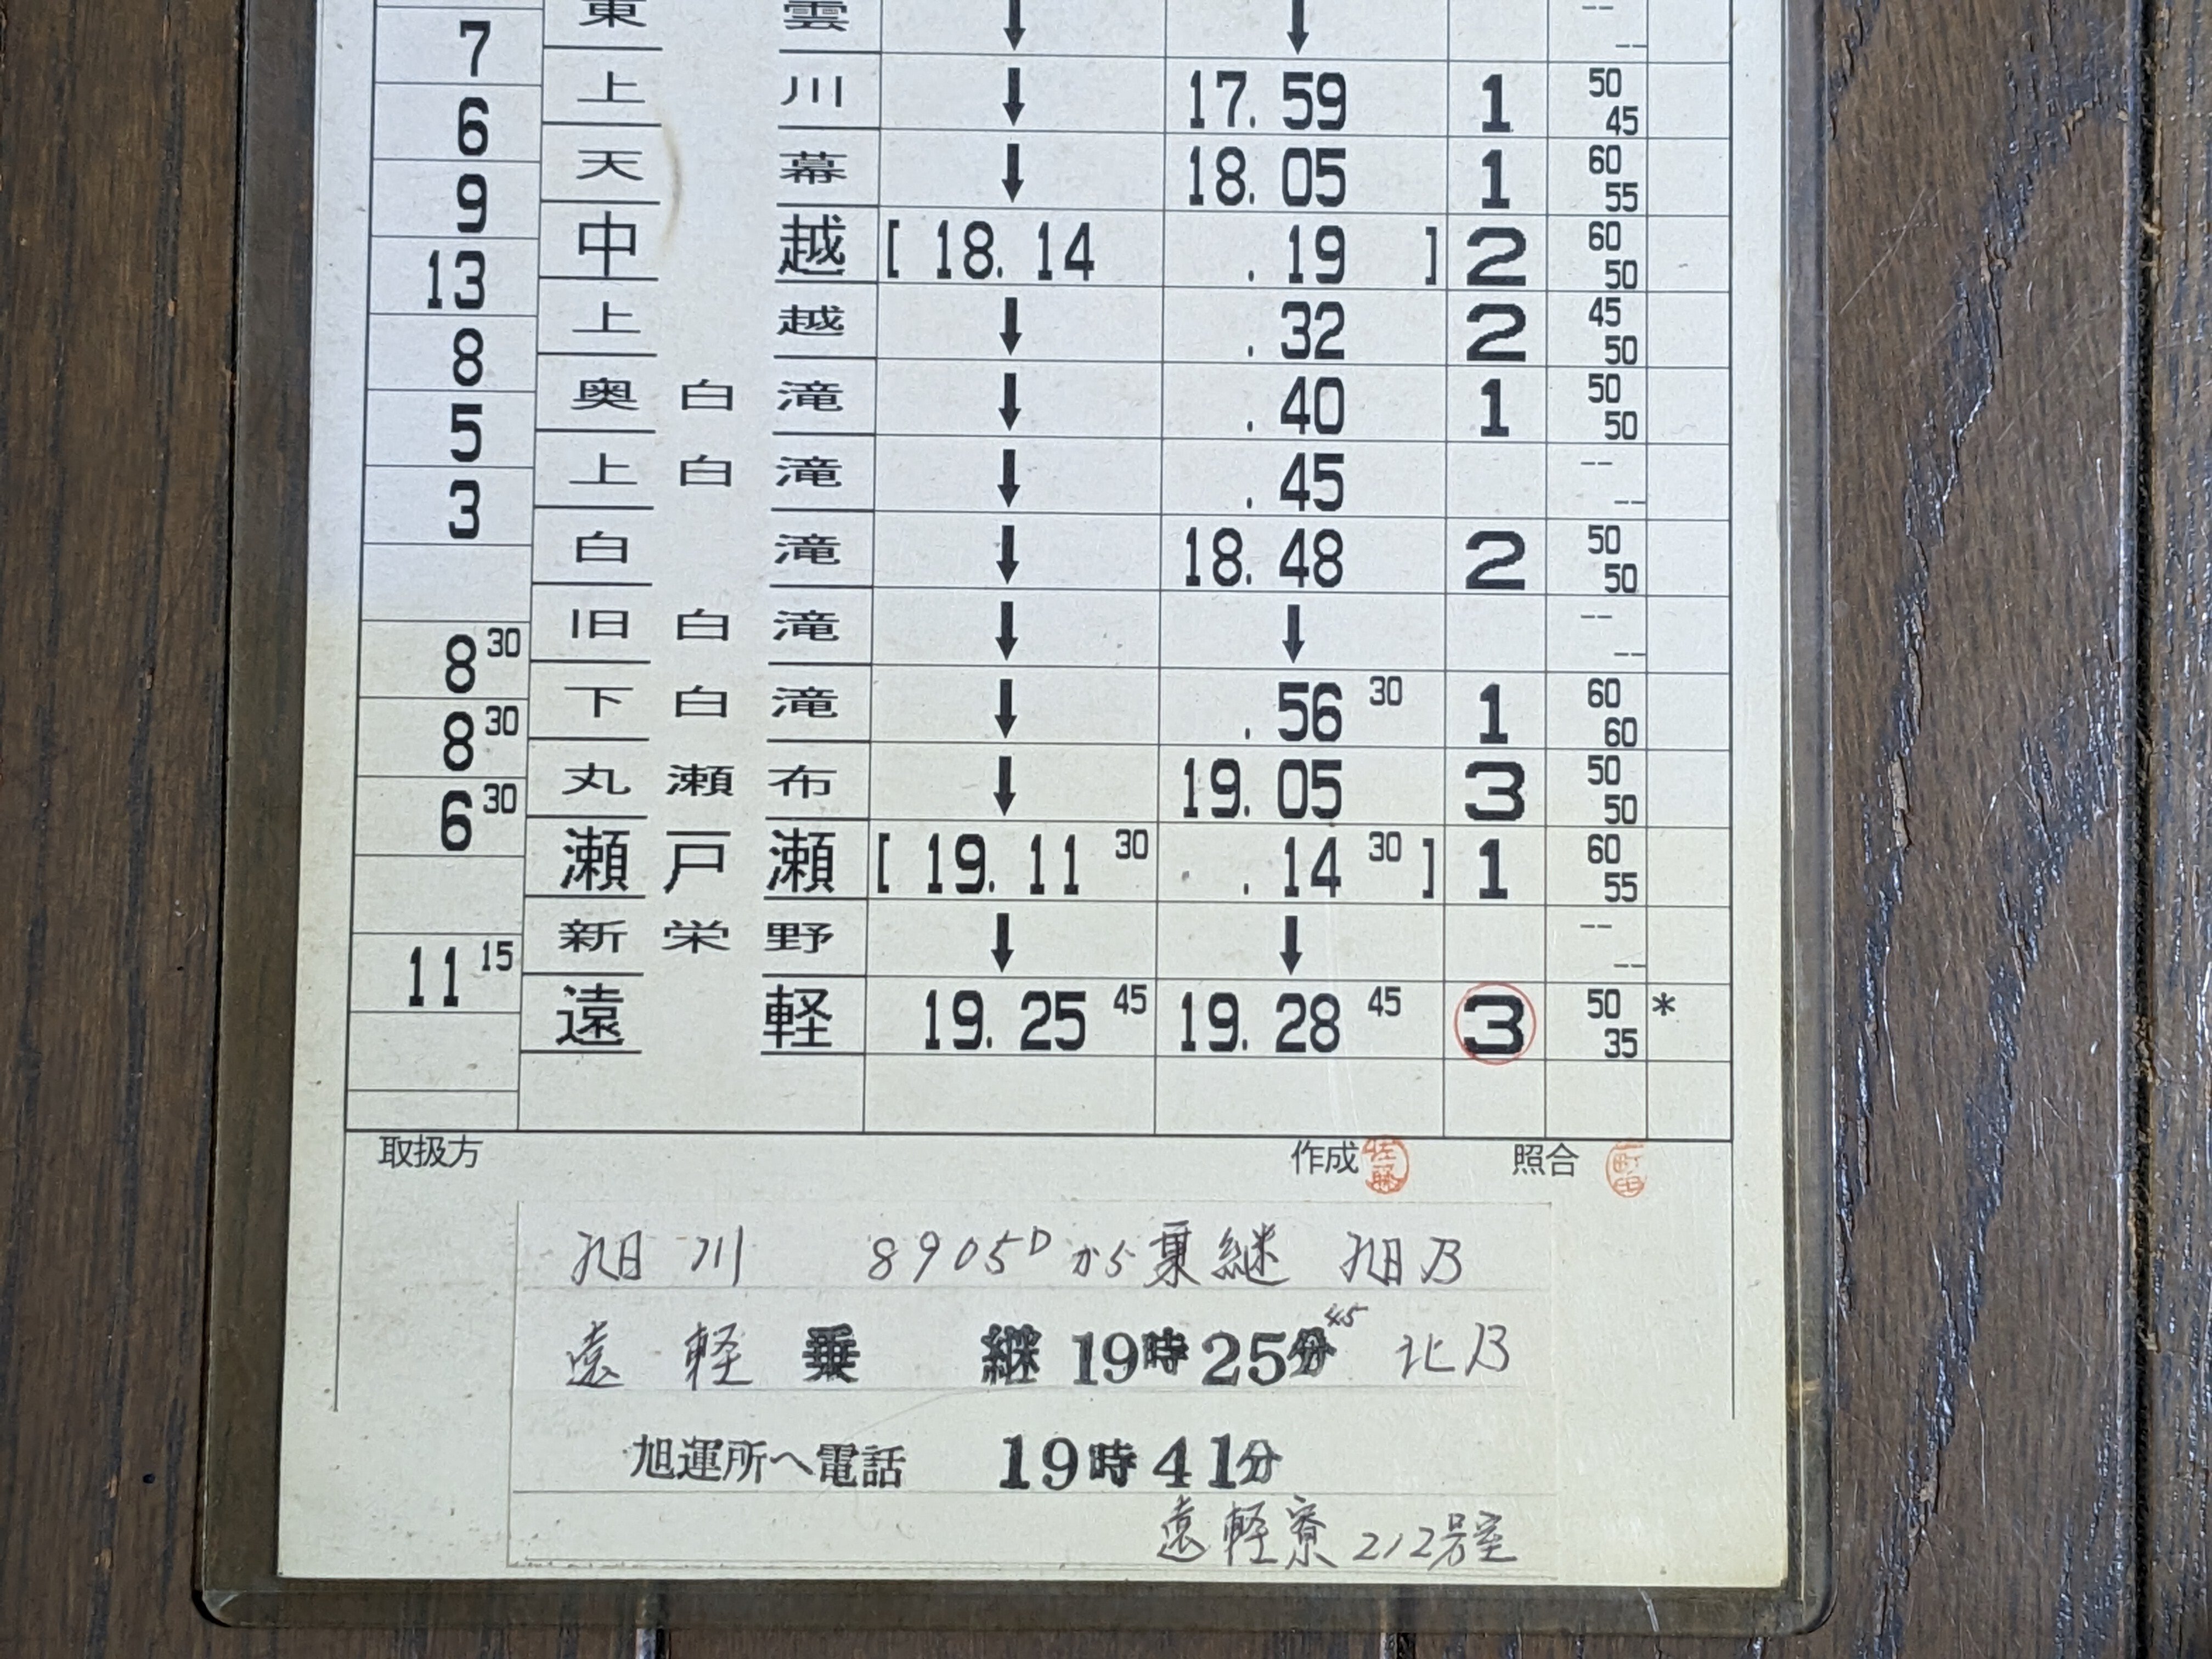 東雲 ↓ ↓ -- --
7
上川 ↓ 17.59 1 50 45
6
天幕 ↓ 18.05 1 60 55
9
中越 [18.14 .19] 2 60 50
13
上越 ↓ .32 2 45 50
8
奥白滝 ↓ .40 1 50 50
5
上白滝 ↓ .45 -- --
3
白滝 ↓ 18.48 2 50 50
旧白滝 ↓ ↓ -- --
8 30
下白滝 ↓ .56 30 1 60 60
8 30
丸瀬布 ↓ 19.05 3 50 50
6 30
瀬戸瀬 [19.11 30 .14 30] 1 60 55
新栄野 ↓ ↓ -- --
11 15
遠軽 19.25 45 19.28 45 3 50 35 *
取扱方 作成 佐藤 照合
旭川 8905D から乗継 旭乃
遠軽 乗継 19時25分45 北乃
旭運所へ電話 19時41分
遠軽寮 212号室